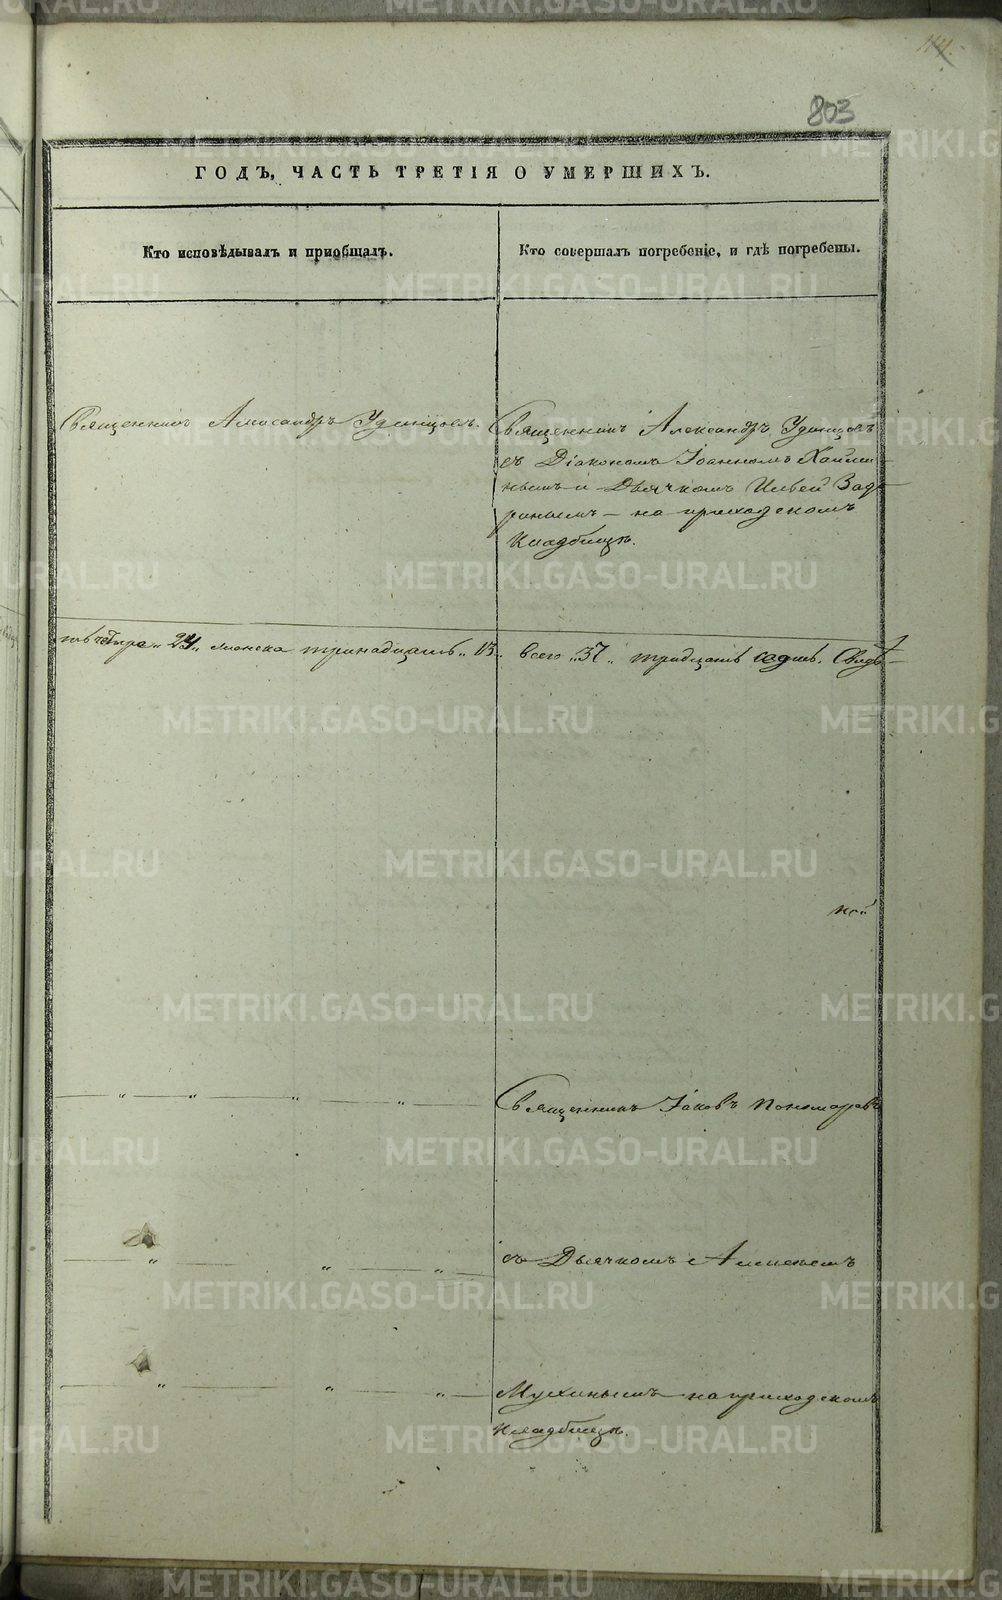 114.
803
ГОДЪ, ЧАСТЬ ТРЕТІЯ О УМЕРШИХЪ.
Кто исповѣдывалъ и пріобщалъ.
Кто совершалъ погребеніе, и гдѣ погребены.
Священникъ Александръ Удинцовъ.
Священникъ Александръ Удинцовъ
съ Діакономъ Іоанномъ
и Дьячкомъ Ильей
на приходскомъ
Кладбищѣ.
24 женска тринадцать 13
всего 37 тридцать седмь.
кой
Священникъ Іаковъ Пономаревъ
съ Дьячкомъ
Мухинымъ на приходскомъ
кладбищѣ.
METRIKI.GASO-URAL.RU